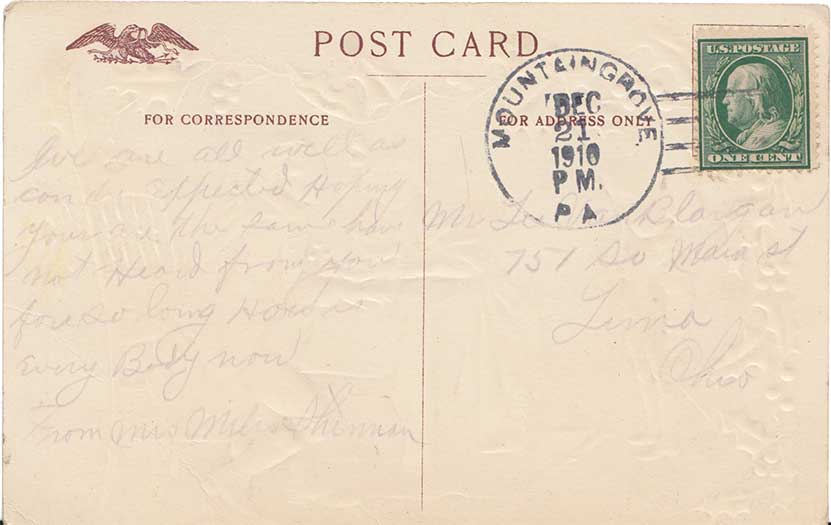 POST CARD
FOR CORRESPONDENCE
FOR ADDRESS ONLY
MOUNTAINGROVE.
DEC
21
1910
P M.
PA
U.S. POSTAGE
ONE CENT
We are all well as
can be Expected Hoping
Yours are the same have
not Heard from you
for so long How is
Every Body now
From Mrs Miles
Mr
757 So Main st
Lima
Ohio